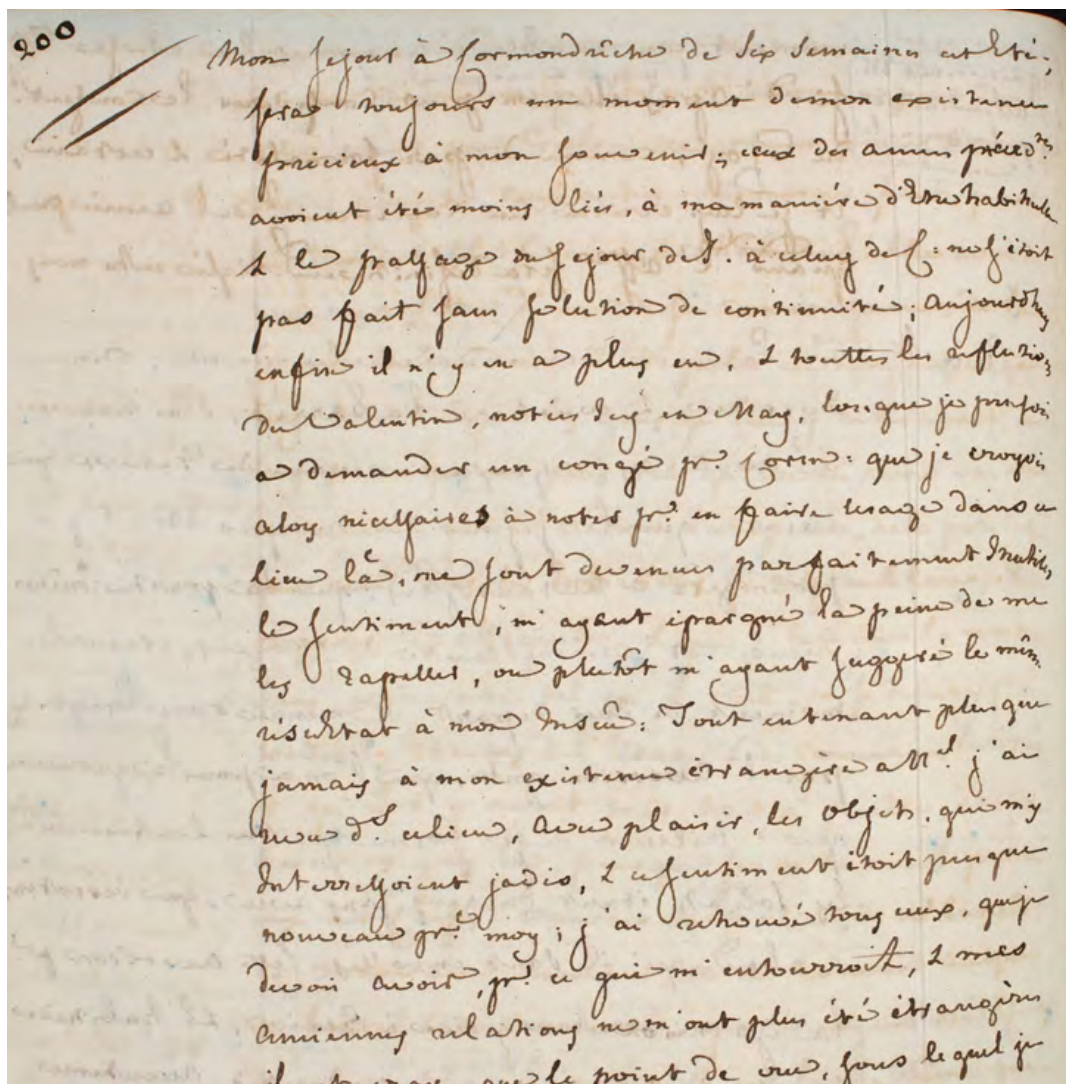 200
Mon sejour à Cormondrêche de six semaines cet Eté,
sera toujours un moment de mon existence
précieux à mon souvenir; ceux des années précéd.tes
avoient été moins liés, à ma manière d'Etre habituelle
& le passage du sejour de à celuy de C: ne s'étoit
pas fait sans solution de continuité; aujourdhuy
enfin il n'y en a plus eu, & touttes les reflexions
du Valentin, notées icy en May, lorsque je pensois
a demander un congé pr. Corm: que je croyois
alors nécessaires à noter pr. en faire usage dans ce
lieu là, me sont devenues parfaitement Inutiles,
le sentiment, m'ayant épargné la peine de me
les rapeller, ou plutôt m'ayant suggeré le même
résultat à mon Insçû: Tout en tenant plus que
jamais à mon existence étrangère a j'ai
revu ds. ce lieu, avec plaisir, les Objets, qui m'y
Interressoient jadis, & ce sentiment étoit presque
nouveau pr. moy; j'ai retrouvé tous ceux, que je
devois avoir, pr. ce qui m'entourroit, & mes
anciennes relations ne m'ont plus été étrangères
que le point de vue, sous lequel je